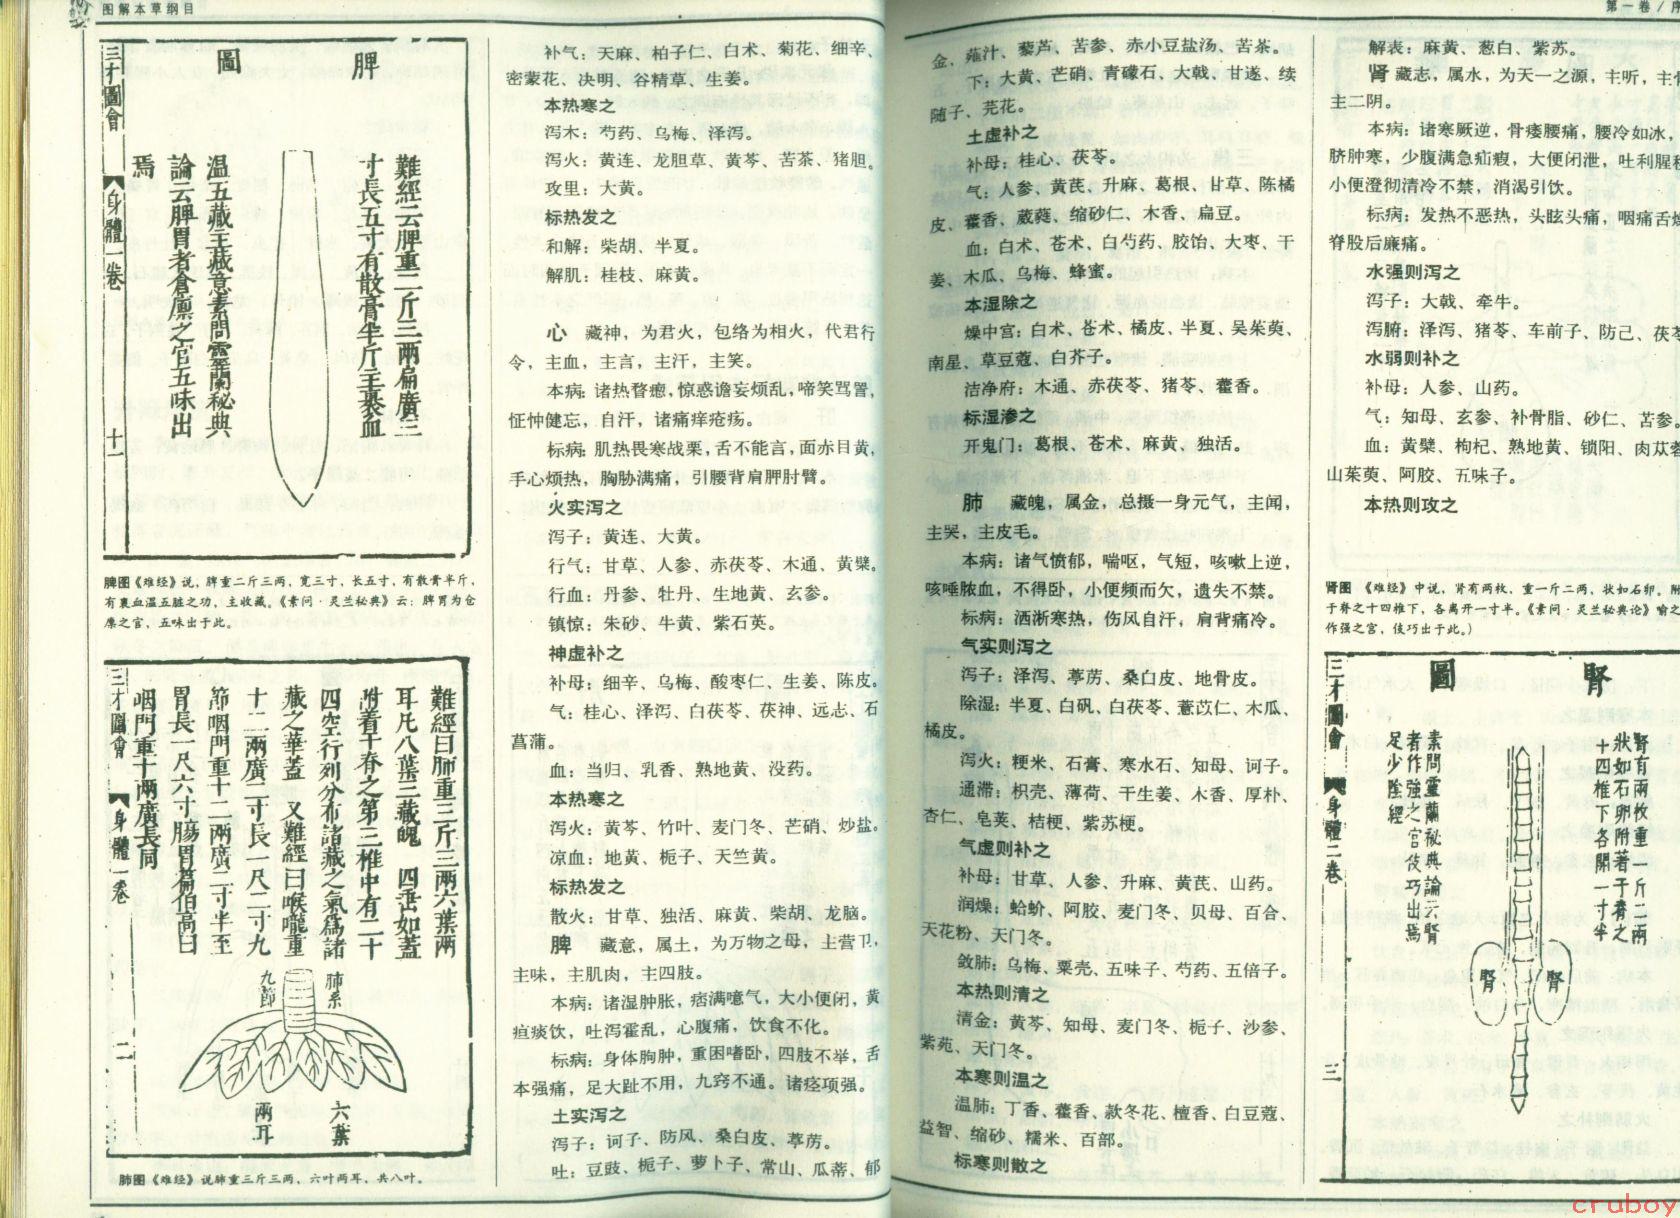 图解本草纲目
三才圖會
身體一卷
十一
脾
圖
難經云脾重二斤三兩扁廣三
寸長五寸有散膏半斤主裹血
温五藏主藏意素問靈蘭秘典
論云脾胃者倉廩之官五味出
焉
脾图《难经》说,脾重二斤三两,宽三寸,长五寸,有散膏半斤,
有裹血温五脏之功,主收藏。《素问·灵兰秘典》云:脾胃为仓
廪之官,五味出于此。
三才圖會
身體一卷
二
難經曰肺重三斤三兩六葉兩
耳凡八葉主藏魄 四垂如蓋
附着于脊之第三椎中有二十
四空行列分布諸藏之氣爲諸
藏之華蓋 又難經曰喉嚨重
十二兩廣二寸長一尺二寸九
節咽門重十二兩廣二寸半至
胃長一尺六寸腸胃篇伯高曰
咽門重十兩廣長同
肺系
九節
六葉
兩耳
肺图《难经》说肺重三斤三两,六叶两耳,共八叶。
补气:天麻、柏子仁、白术、菊花、细辛、
密蒙花、决明、谷精草、生姜。
本热寒之
泻木:芍药、乌梅、泽泻。
泻火:黄连、龙胆草、黄芩、苦茶、猪胆。
攻里:大黄。
标热发之
和解:柴胡、半夏。
解肌:桂枝、麻黄。
心 藏神,为君火,包络为相火,代君行
令,主血,主言,主汗,主笑。
本病:诸热瞀瘛,惊惑谵妄烦乱,啼笑骂詈,
怔忡健忘,自汗,诸痛痒疮疡。
标病:肌热畏寒战栗,舌不能言,面赤目黄,
手心烦热,胸胁满痛,引腰背肩胛肘臂。
火实泻之
泻子:黄连、大黄。
行气:甘草、人参、赤茯苓、木通、黄檗。
行血:丹参、牡丹、生地黄、玄参。
镇惊:朱砂、牛黄、紫石英。
神虚补之
补母:细辛、乌梅、酸枣仁、生姜、陈皮。
气:桂心、泽泻、白茯苓、茯神、远志、石
菖蒲。
血:当归、乳香、熟地黄、没药。
本热寒之
泻火:黄芩、竹叶、麦门冬、芒硝、炒盐。
凉血:地黄、栀子、天竺黄。
标热发之
散火:甘草、独活、麻黄、柴胡、龙脑。
脾 藏意,属土,为万物之母,主营卫,
主味,主肌肉,主四肢。
本病:诸湿肿胀,痞满噫气,大小便闭,黄
疸痰饮,吐泻霍乱,心腹痛,饮食不化。
标病:身体胕肿,重困嗜卧,四肢不举,舌
本强痛,足大趾不用,九窍不通。诸痉项强。
土实泻之
泻子:诃子、防风、桑白皮、葶苈。
吐:豆豉、栀子、萝卜子、常山、瓜蒂、郁
第一卷/序
金、薤汁、藜芦、苦参、赤小豆盐汤、苦茶。
下:大黄、芒硝、青礞石、大戟、甘遂、续
随子、芫花。
土虚补之
补母:桂心、茯苓。
气:人参、黄芪、升麻、葛根、甘草、陈橘
皮、藿香、葳蕤、缩砂仁、木香、扁豆。
血:白术、苍术、白芍药、胶饴、大枣、干
姜、木瓜、乌梅、蜂蜜。
本湿除之
燥中宫:白术、苍术、橘皮、半夏、吴茱萸、
南星、草豆蔻、白芥子。
洁净府:木通、赤茯苓、猪苓、藿香。
标湿渗之
开鬼门:葛根、苍术、麻黄、独活。
肺 藏魄,属金,总摄一身元气,主闻,
主哭,主皮毛。
本病:诸气愤郁,喘呕,气短,咳嗽上逆,
咳唾脓血,不得卧,小便频而欠,遗失不禁。
标病:洒淅寒热,伤风自汗,肩背痛冷。
气实则泻之
泻子:泽泻、葶苈、桑白皮、地骨皮。
除湿:半夏、白矾、白茯苓、薏苡仁、木瓜、
橘皮。
泻火:粳米、石膏、寒水石、知母、诃子。
通滞:枳壳、薄荷、干生姜、木香、厚朴、
杏仁、皂荚、桔梗、紫苏梗。
气虚则补之
补母:甘草、人参、升麻、黄芪、山药。
润燥:蛤蚧、阿胶、麦门冬、贝母、百合、
天花粉、天门冬。
敛肺:乌梅、粟壳、五味子、芍药、五倍子。
本热则清之
清金:黄芩、知母、麦门冬、栀子、沙参、
紫苑、天门冬。
本寒则温之
温肺:丁香、藿香、款冬花、檀香、白豆蔻、
益智、缩砂、糯米、百部。
标寒则散之
解表:麻黄、葱白、紫苏。
肾 藏志,属水,为天一之源,主听,主骨
主二阴。
本病:诸寒厥逆,骨痿腰痛,腰冷如冰,
脐肿寒,少腹满急疝瘕,大便闭泄,吐利腥秽
小便澄彻清冷不禁、消渴引饮。
标病:发热不恶热,头眩头痛,咽痛舌燥
脊股后廉痛。
水强则泻之
泻子:大戟、牵牛。
泻腑:泽泻、猪苓、车前子、防己、茯苓
水弱则补之
补母:人参、山药。
气:知母、玄参、补骨脂、砂仁、苦参。
血:黄檗、枸杞、熟地黄、锁阳、肉苁蓉
山茱萸、阿胶、五味子。
本热则攻之
肾图 《难经》中说,肾有两枚,重一斤二两,状如石卵,附
于脊之十四椎下,各离开一寸半。《素问·灵兰秘典论》喻之
作强之官,伎巧出于此。)
三才圖會
身體二卷
三
腎
圖
腎有兩枚重一斤二兩
狀如石卵附著于脊之
十四椎下各開一寸半
素問靈蘭秘典論云腎
者作強之官伎巧出焉
足少陰經
腎
腎
cruboy